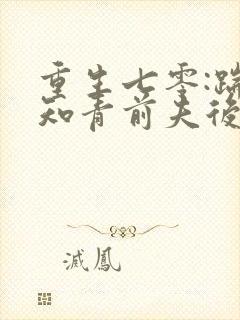 重生七零:踹
知青前夫後
滅鳳